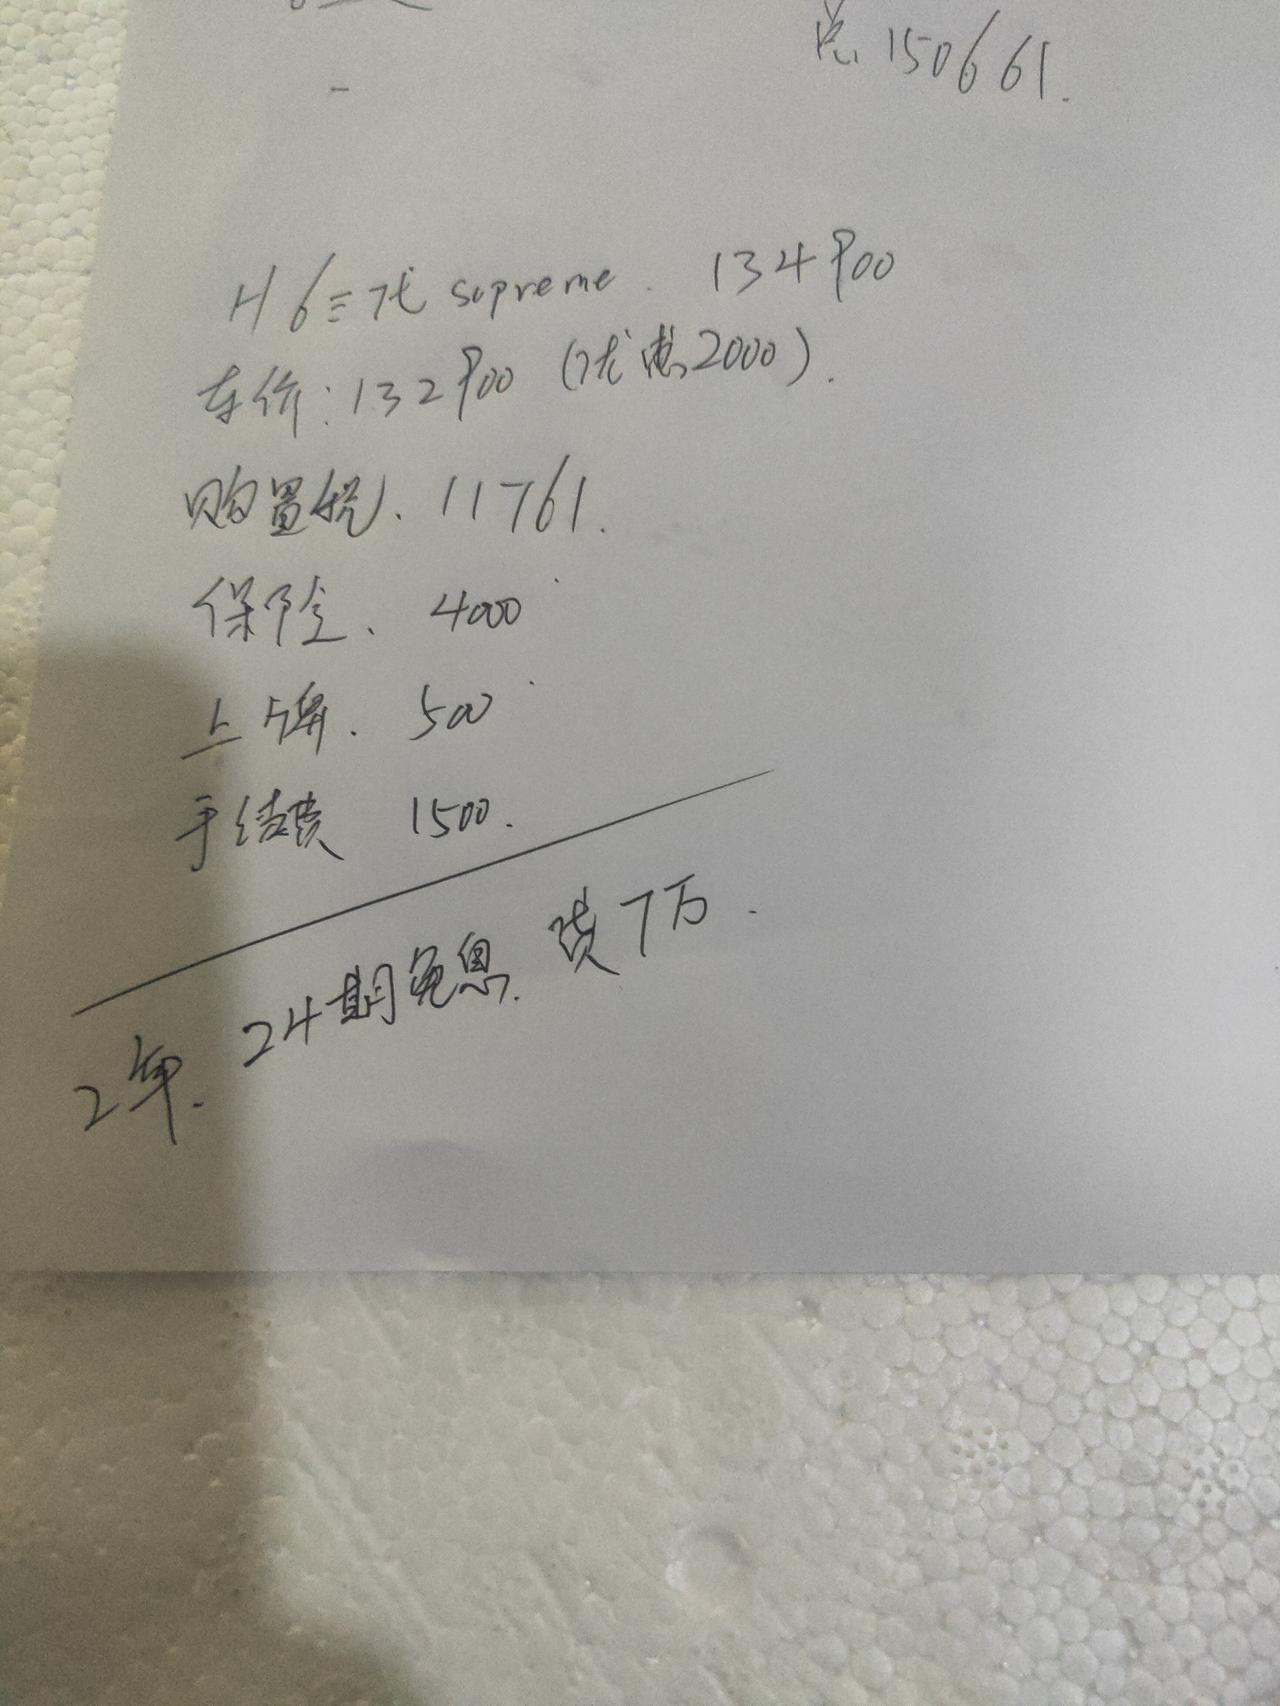 总 150661.
H6三代 supreme. 134900
车价: 132900 (优惠2000).
购置税. 11761.
保险. 4000
上牌. 500
手续费 1500.
2年. 24期免息. 贷7万.